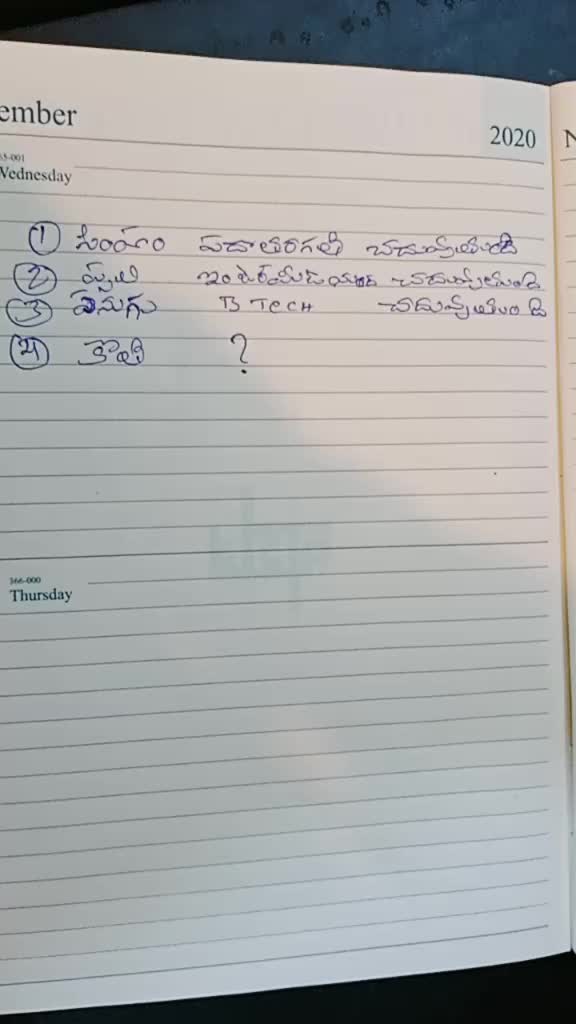 ember
2020
N
65-001
Wednesday
① సింహం పదాతరగతి చదువ్వుతుంది
② పులి ఇంటర్మీడియట్ చదువ్వుతుంది
③ ఏనుగు B TECH చదువ్వుతుంది
④ కోతి ?
366-000
Thursday